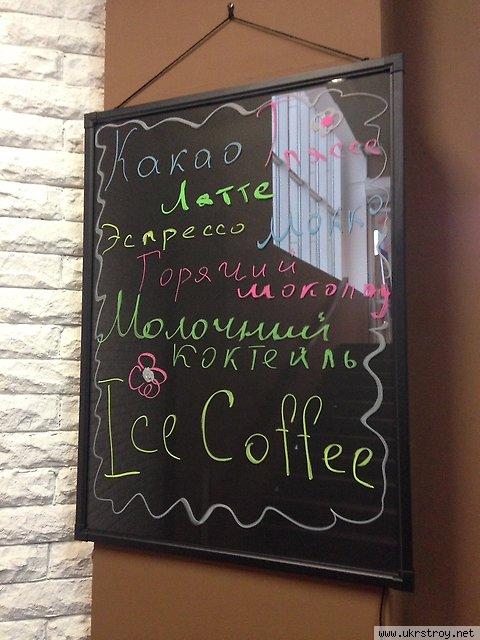 Какао Глясе
Латте
Эспрессо Мокко
Горячий
шоколад
Молочний
коктейль
Ice Coffee
www.ukrstroy.net